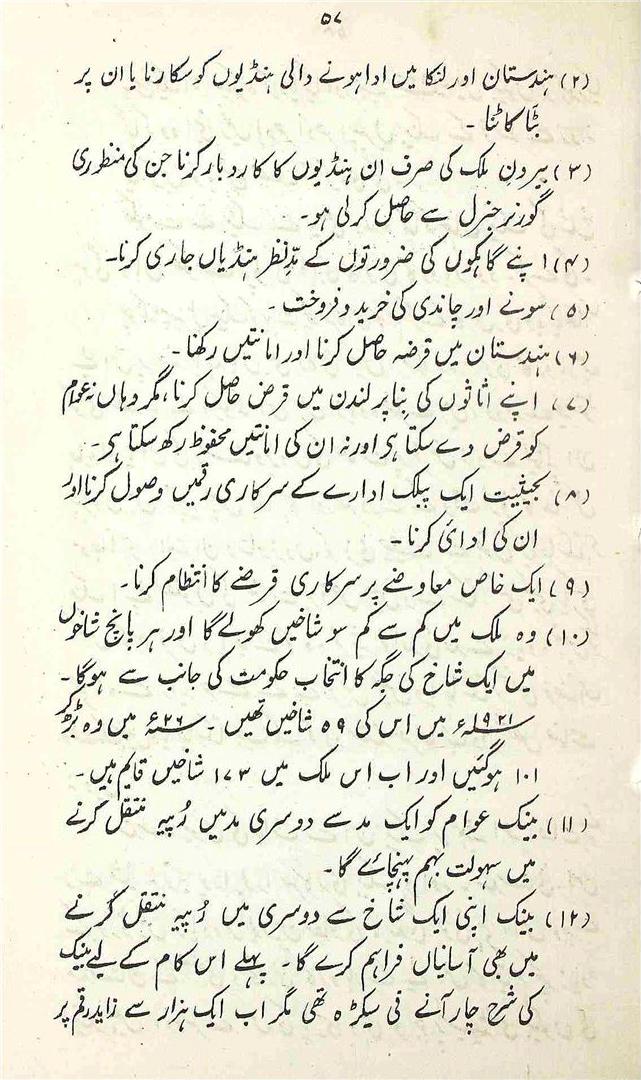 ۵۷
(۲) ہندستان اور لنکا میں ادا ہونے والی ہنڈیوں کو سکارنا یا ان پر
بٹّا کاٹنا ۔
(۳) بیرونِ ملک کی صرف ان ہنڈیوں کا کاروبار کرنا جن کی منظوری
گورنر جنرل سے حاصل کرلی ہو۔
(۴) اپنے گاہکوں کی ضرورتوں کے مدِّنظر ہنڈیاں جاری کرنا۔
(۵) سونے اور چاندی کی خرید و فروخت ۔
(۶) ہندستان میں قرضہ حاصل کرنا اور امانتیں رکھنا ۔
(۷) اپنے اثاثوں کی بِنا پر لندن میں قرض حاصل کرنا، مگر وہاں نہ عوام
کو قرض دے سکتا ہی اور نہ ان کی امانتیں محفوظ رکھ سکتا ہی۔
(۸) بحیثیت ایک پبلک ادارے کے سرکاری رقمیں وصول کرنا اور
ان کی ادائ کرنا ۔
(۹) ایک خاص معاوضے پر سرکاری قرضے کا انتظام کرنا۔
(۱۰) وہ ملک میں کم سے کم سو شاخیں کھولے گا اور ہر پانچ شاخوں
میں ایک شاخ کی جگہ کا انتخاب حکومت کی جانب سے ہوگا۔
۱۹۲۱ء میں اس کی ۵۹ شاخیں تھیں ۔ ۲۶ء میں وہ بڑھ کر
۱۰۱ ہوگئیں اور اب اس ملک میں ۱۷۳ شاخیں قایم ہیں ۔
(۱۱) بینک عوام کو ایک مد سے دوسری مد میں رُپیہ منتقل کرنے
میں سہولت بہم پہنچائے گا۔
(۱۲) بینک اپنی ایک شاخ سے دوسری میں رُپیہ منتقل کرنے
میں بھی آسانیاں فراہم کرے گا۔ پہلے اس کام کے لیے بینک
کی شرح چار آنے فی سیکڑہ تھی مگر اب ایک ہزار سے زاید رقم پر